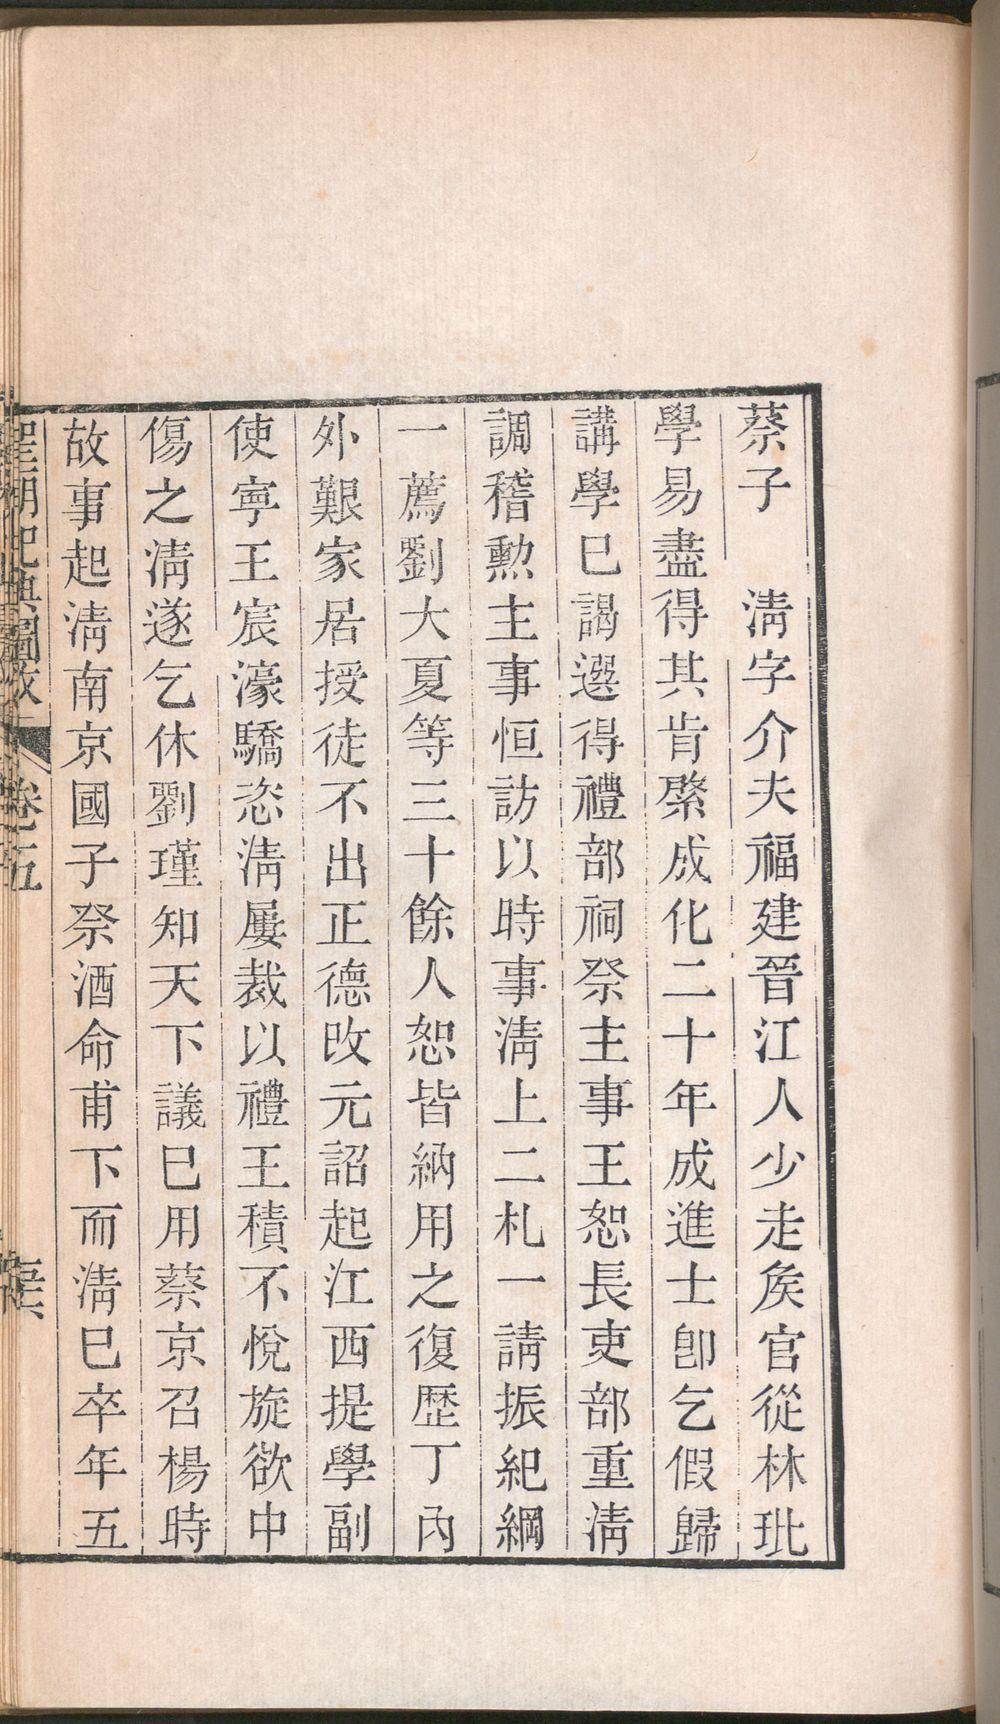 蔡子　清字介夫福建晉江人少走矦官從林玭
學易盡得其肯綮成化二十年成進士卽乞假歸
講學已謁選得禮部祠祭主事王恕長吏部重清
調稽勲主事恒訪以時事清上二札一請振紀綱
一薦劉大夏等三十餘人恕皆納用之復歷丁內
外艱家居授徒不出正德改元詔起江西提學副
使寧王宸濠驕恣清屢裁以禮王積不悅旋欲中
傷之清遂乞休劉瑾知天下議已用蔡京召楊時
故事起清南京國子祭酒命甫下而清已卒年五
聖廟祀典圖攷 卷五